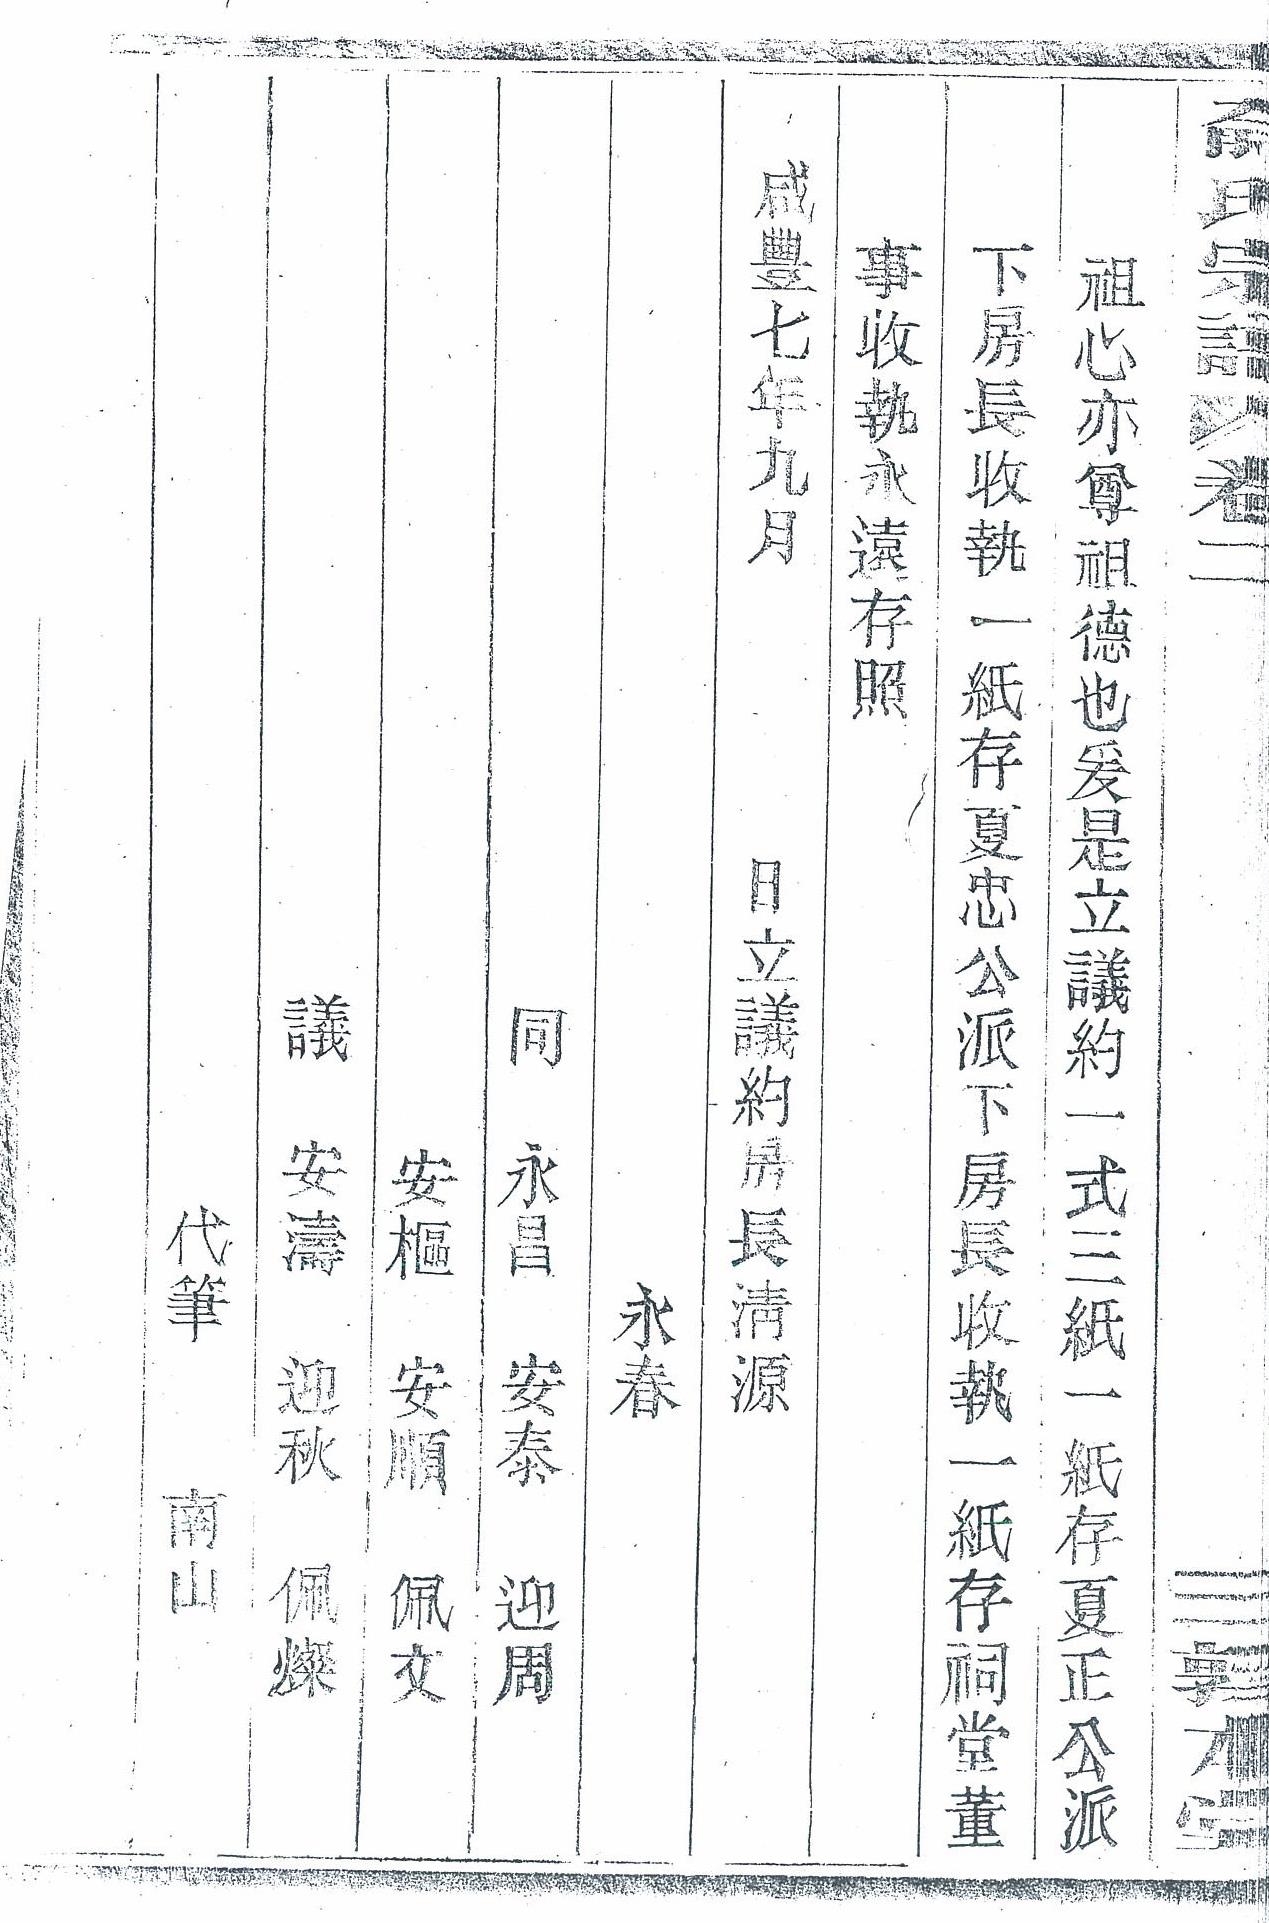 氏宗譜 卷二
祖心亦尊祖德也爰是立議約一式三紙一紙存夏正公派
下房長收執一紙存夏忠公派下房長收執一紙存祠堂董
事收執永遠存照
咸豐七年九月 日立議約房長清源
永春
同 永昌 安泰 迎周
安樞 安順 佩文
議 安濤 迎秋 佩燦
代筆 南山